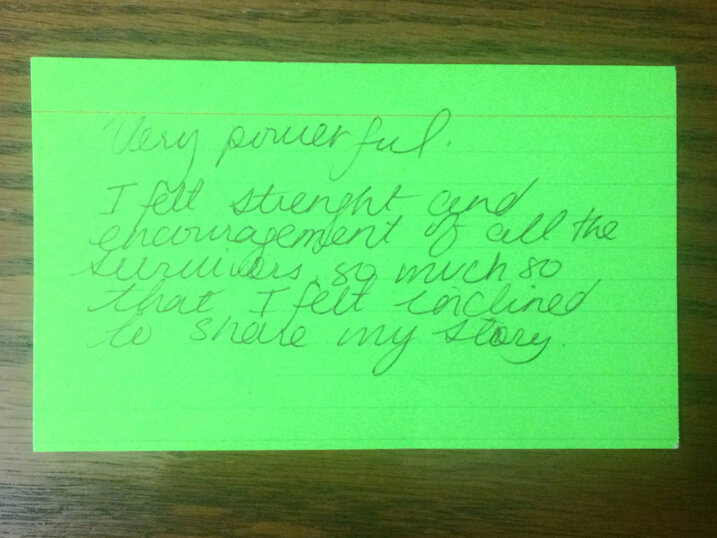 Very powerful.
I felt strenght and
encouragement of all the
survivors, so much so
that I felt inclined
to share my story.